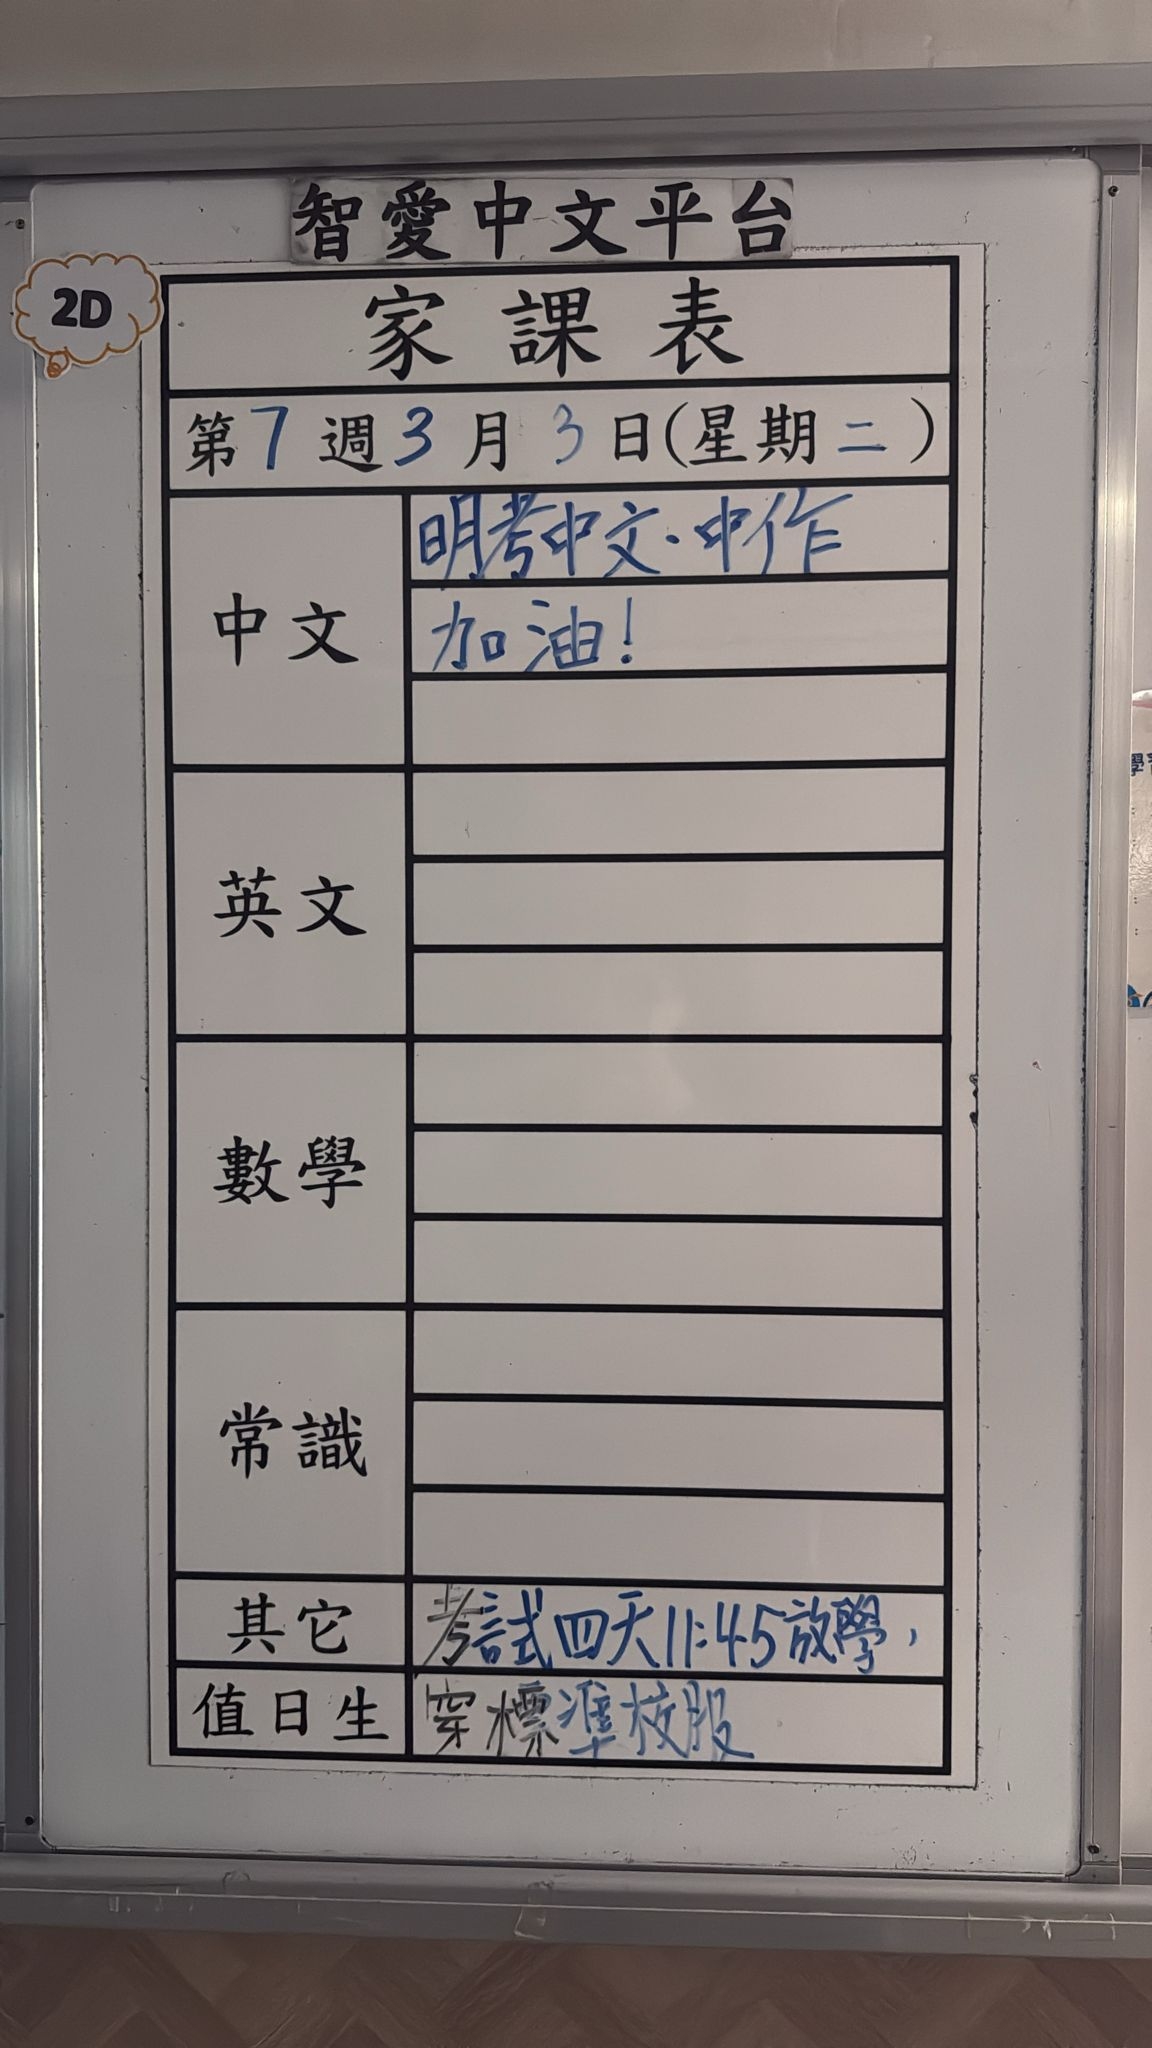 智愛中文平台
2D
家課表
第7週3月3日(星期二)
中文
明考中文.中作
加油!
英文
數學
常識
其它
考試四天11:45放學,
值日生
穿標準校服
學